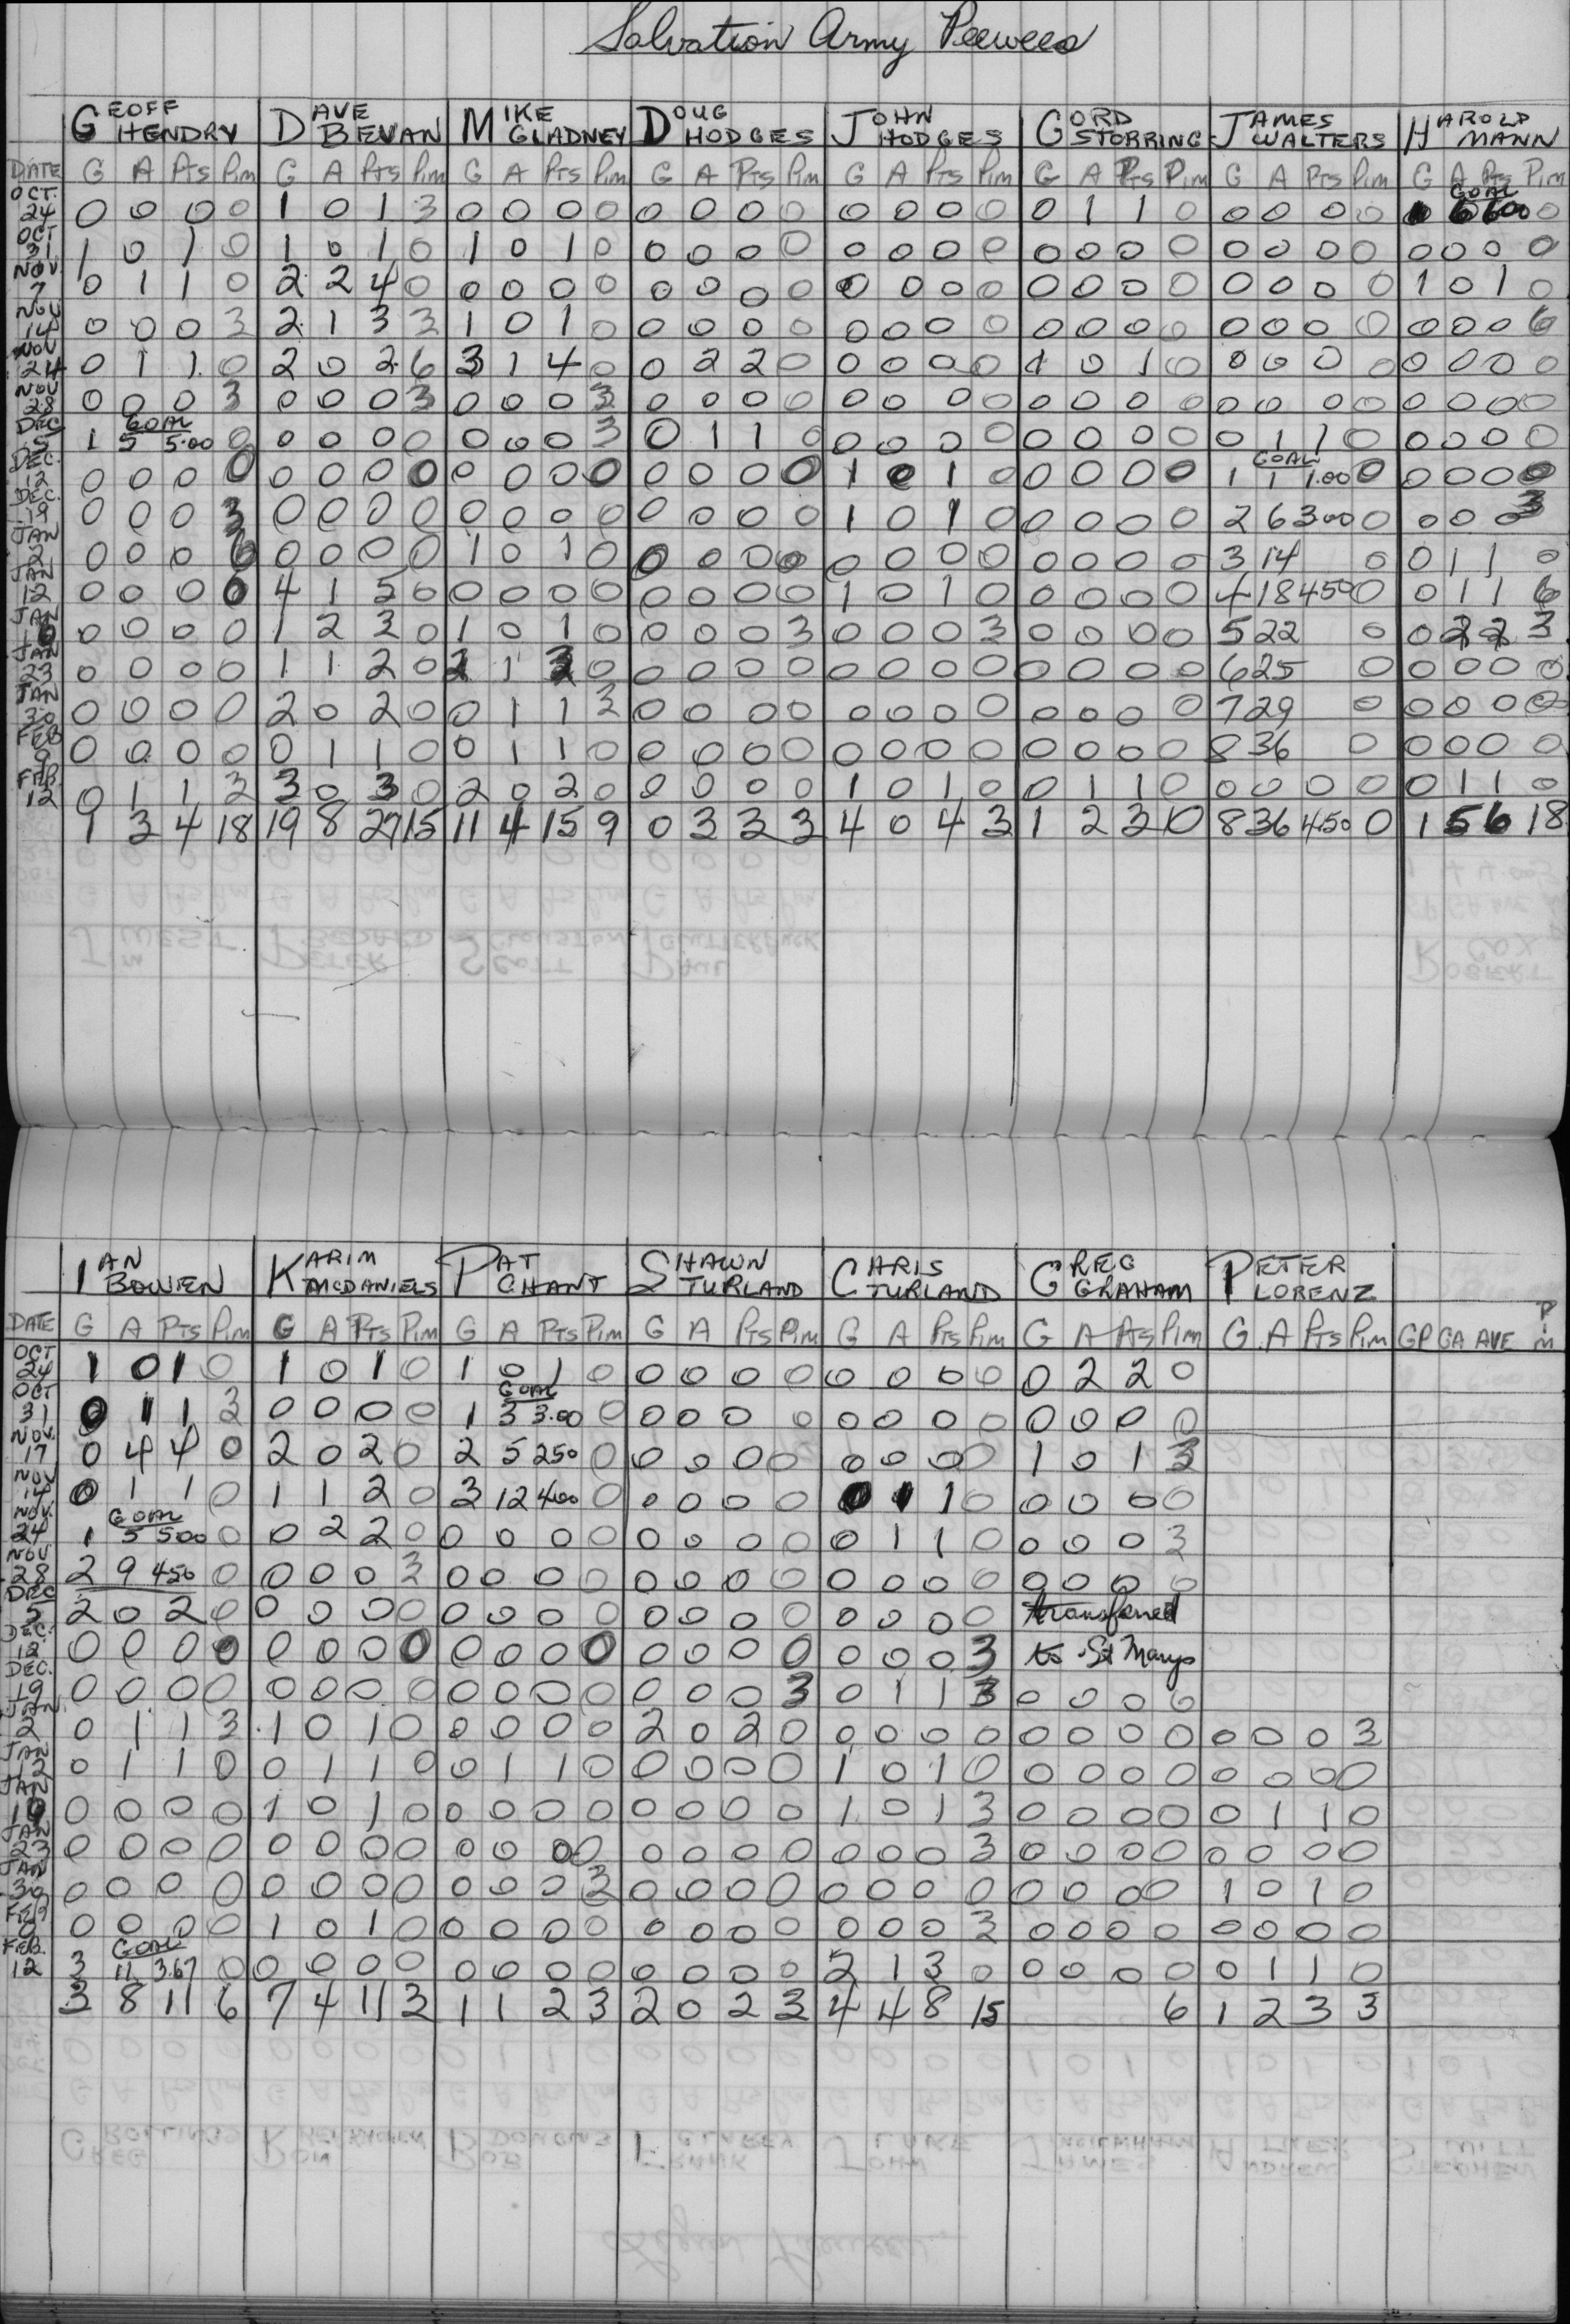 Salvation Army Peewees
GEOFF HENDRY DAVE BEVAN MIKE GLADNEY DOUG HODGES JOHN HODGES GORD STORRING JAMES WALTERS HAROLD MANN
DATE G A PTS Pim G A PTS Pim G A PTS Pim G A PTS Pim G A PTS Pim G A PTS Pim G A PTS Pim G A PTS Pim
GOAL
OCT. 24 0 0 0 0 1 0 1 3 0 0 0 0 0 0 0 0 0 0 0 0 0 1 1 0 0 0 0 0 1 6 600 0
OCT 31 1 0 1 0 1 0 1 0 1 0 1 0 0 0 0 0 0 0 0 0 0 0 0 0 0 0 0 0 0 0 0 0
NOV. 7 0 1 1 0 2 2 4 0 0 0 0 0 0 0 0 0 0 0 0 0 0 0 0 0 0 0 0 0 1 0 1 0
NOV 14 0 0 0 3 2 1 3 3 1 0 1 0 0 0 0 0 0 0 0 0 0 0 0 0 0 0 0 0 0 0 0 6
NOV 24 0 1 1 0 2 0 2 6 3 1 4 0 0 2 2 0 0 0 0 0 1 0 1 0 0 0 0 0 0 0 0 0
NOV 28 0 0 0 3 0 0 0 3 0 0 0 3 0 0 0 0 0 0 0 0 0 0 0 0 0 0 0 0 0 0 0 0
GOAL
DEC 5 1 5 5.00 0 0 0 0 0 0 0 0 3 0 1 1 0 0 0 0 0 0 0 0 0 0 1 1 0 0 0 0 0
GOAL
DEC. 12 0 0 0 0 0 0 0 0 0 0 0 0 0 0 0 0 1 0 1 0 0 0 0 0 1 1 1.00 0 0 0 0 0
DEC. 19 0 0 0 3 0 0 0 0 0 0 0 0 0 0 0 0 1 0 1 0 0 0 0 0 2 6 300 0 0 0 0 3
JAN 2 0 0 0 6 0 0 0 0 1 0 1 0 0 0 0 0 0 0 0 0 0 0 0 0 3 14 0 0 1 1 0
JAN 12 0 0 0 0 4 1 5 0 0 0 0 0 0 0 0 0 1 0 1 0 0 0 0 0 4 18 450 0 0 1 1 6
JAN 16 0 0 0 0 1 2 3 0 1 0 1 0 0 0 0 3 0 0 0 3 0 0 0 0 5 22 0 0 2 2 3
JAN 23 0 0 0 0 1 1 2 0 2 1 3 0 0 0 0 0 0 0 0 0 0 0 0 0 6 25 0 0 0 0 0
JAN 30 0 0 0 0 2 0 2 0 0 1 1 3 0 0 0 0 0 0 0 0 0 0 0 0 7 29 0 0 0 0 0
FEB 9 0 0 0 0 0 1 1 0 0 1 1 0 0 0 0 0 0 0 0 0 0 0 0 0 8 36 0 0 0 0 0
FEB. 12 0 1 1 3 3 0 3 0 2 0 2 0 0 0 0 0 1 0 1 0 0 1 1 0 0 0 0 0 0 1 1 0
1 3 4 18 19 8 27 15 11 4 15 9 0 3 3 3 4 0 4 3 1 2 3 0 8 36 4.50 0 1 5 6 18
IAN BOWEN KARIM MCDANIELS PAT CHANT SHAWN TURLAND CHRIS TURLAND GREG GRAHAM PETER LORENZ
DATE G A PTS Pim G A PTS Pim G A PTS Pim G A PTS Pim G A PTS Pim G A PTS Pim G A PTS Pim GP GA AVE Pim
OCT 24 1 0 1 0 1 0 1 0 1 0 1 0 0 0 0 0 0 0 0 0 0 2 2 0
GOAL
OCT 31 0 1 1 3 0 0 0 0 1 3 3.00 0 0 0 0 0 0 0 0 0 0 0 0 0
NOV. 17 0 4 4 0 2 0 2 0 2 5 250 0 0 0 0 0 0 0 0 0 1 0 1 3
NOV 14 0 1 1 0 1 1 2 0 3 12 400 0 0 0 0 0 0 1 1 0 0 0 0 0
GOAL
NOV. 24 1 5 500 0 0 2 2 0 0 0 0 0 0 0 0 0 0 1 1 0 0 0 0 3
NOV 28 2 9 450 0 0 0 0 3 0 0 0 0 0 0 0 0 0 0 0 0 0 0 0 0
DEC 5 2 0 2 0 0 0 0 0 0 0 0 0 0 0 0 0 0 0 0 0 transferred
DEC. 12 0 0 0 0 0 0 0 0 0 0 0 0 0 0 0 0 0 0 0 3 to St Marys
DEC. 19 0 0 0 0 0 0 0 0 0 0 0 0 0 0 0 3 0 1 1 3 0 0 0 0
JAN 2 0 1 1 3 1 0 1 0 0 0 0 0 2 0 2 0 0 0 0 0 0 0 0 0 0 0 0 3
JAN 12 0 1 1 0 0 1 1 0 0 1 1 0 0 0 0 0 1 0 1 0 0 0 0 0 0 0 0 0
JAN 19 0 0 0 0 1 0 1 0 0 0 0 0 0 0 0 0 1 0 1 3 0 0 0 0 0 1 1 0
JAN 23 0 0 0 0 0 0 0 0 0 0 0 0 0 0 0 0 0 0 0 3 0 0 0 0 0 0 0 0
JAN 30 0 0 0 0 0 0 0 0 0 0 0 3 0 0 0 0 0 0 0 0 0 0 0 0 1 0 1 0
FEB 9 0 0 0 0 1 0 1 0 0 0 0 0 0 0 0 0 0 0 0 3 0 0 0 0 0 0 0 0
GOAL
FEB. 12 3 11 3.67 0 0 0 0 0 0 0 0 0 0 0 0 0 2 1 3 0 0 0 0 0 0 1 1 0
3 8 11 6 7 4 11 3 1 1 2 3 2 0 2 3 4 4 8 15 6 1 2 3 3